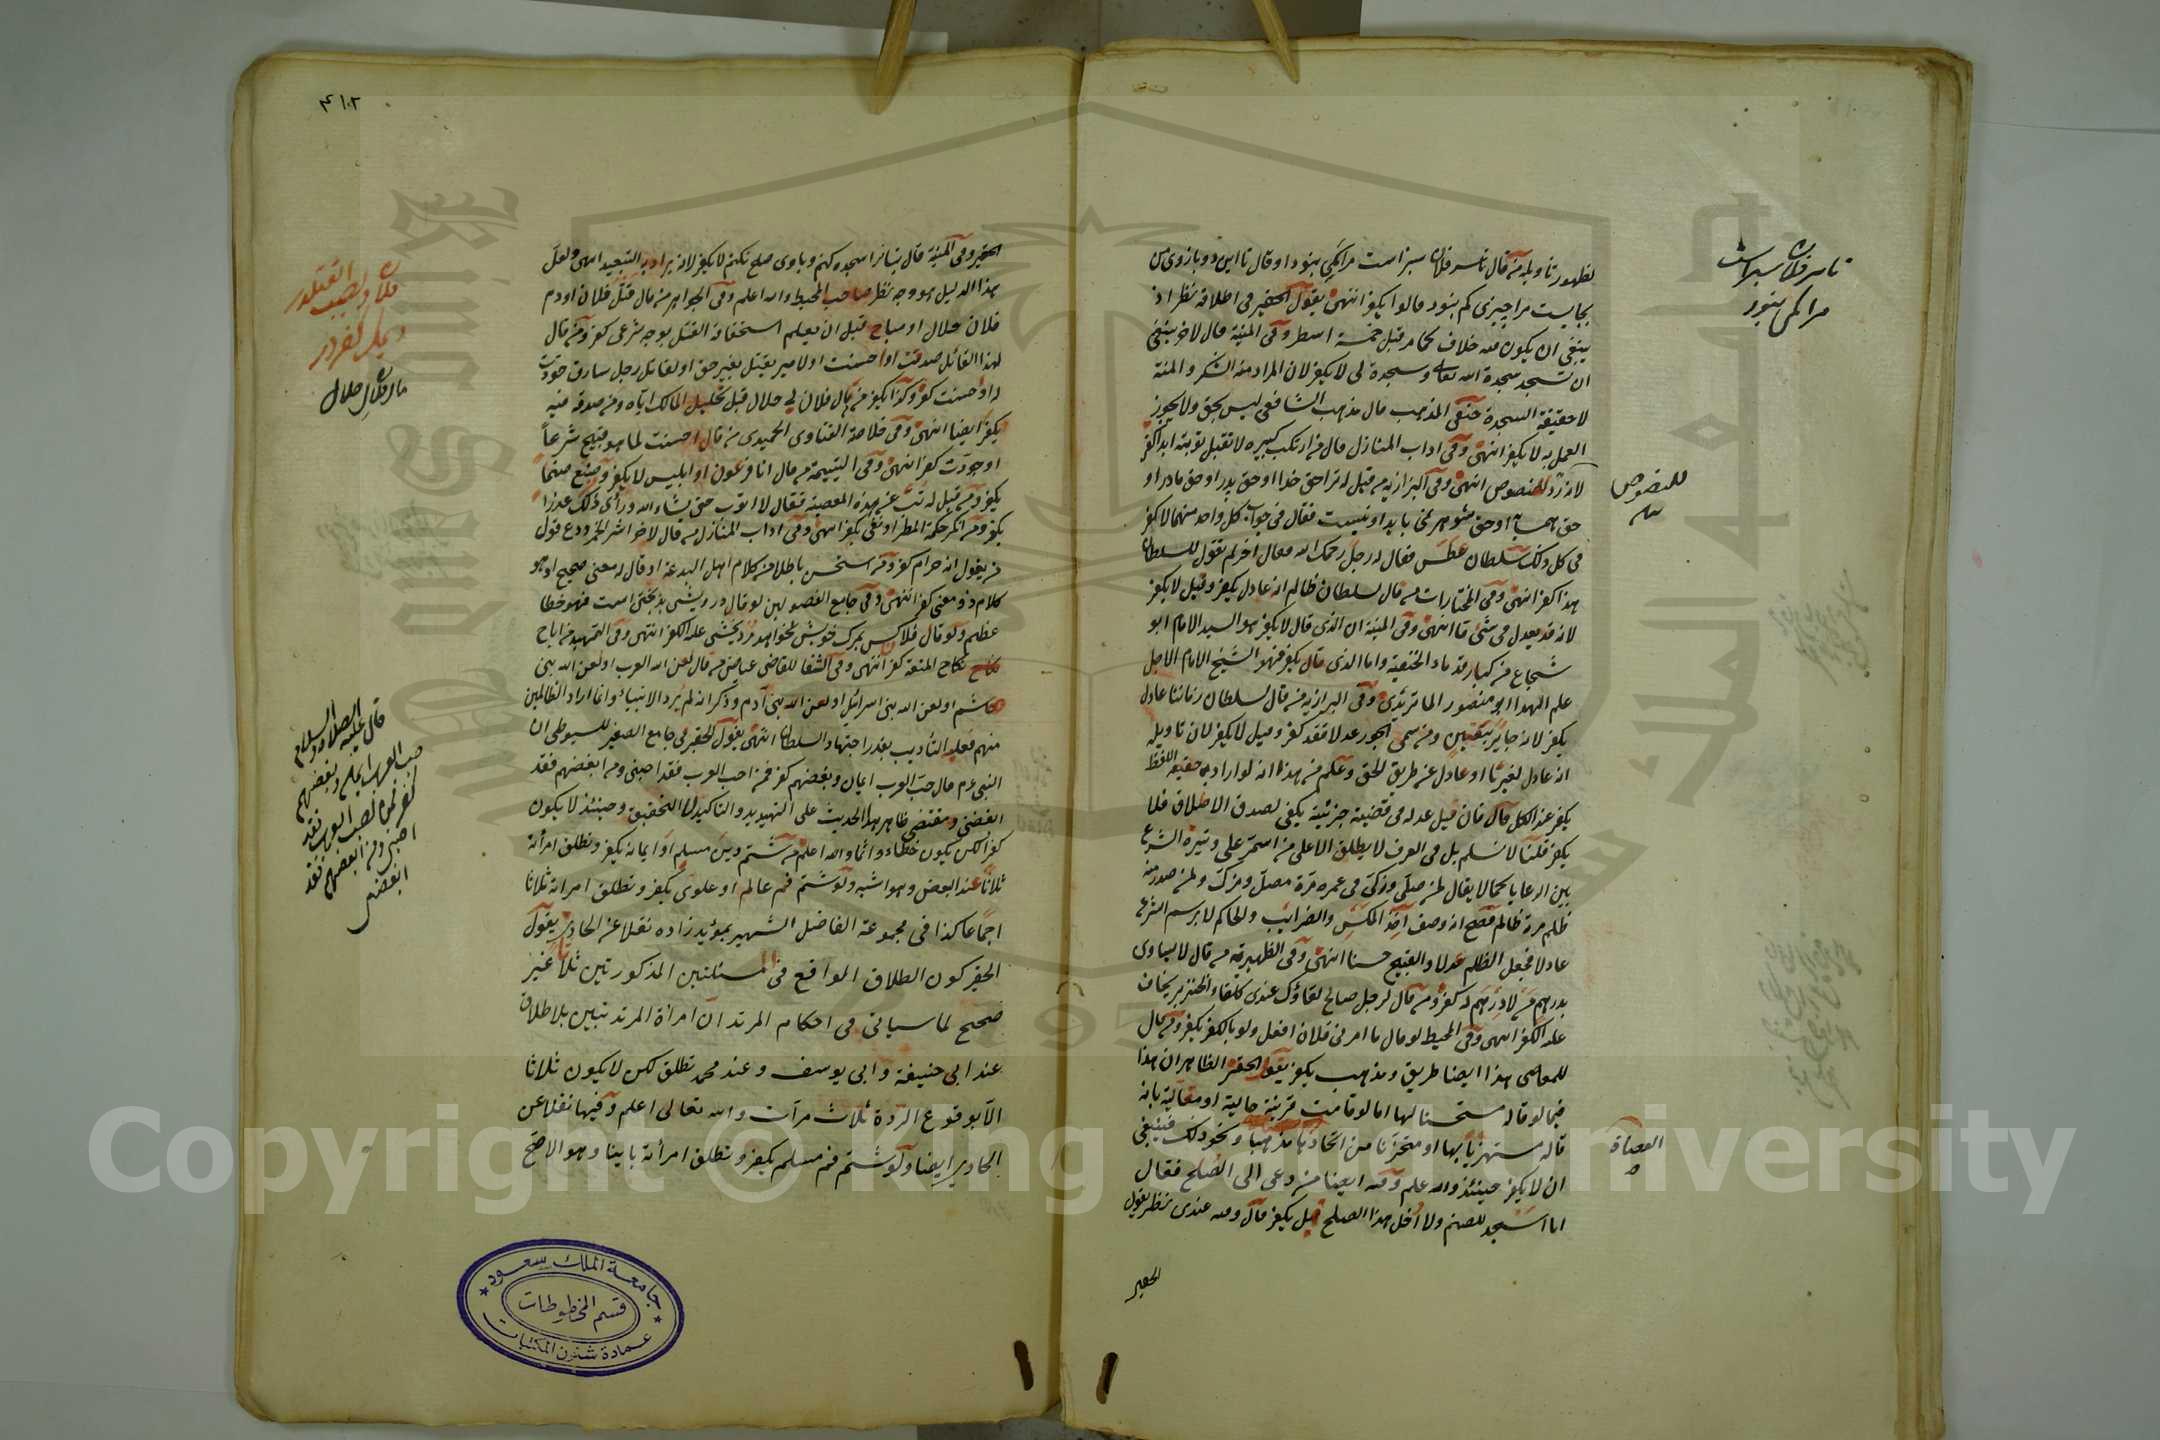 تا سر فلان سبز است
مرا كمى نبود
لظهور تأويله من قال تا سر فلان سبز است مرا كمى نبود او قال تا اين دو بازوى من
بجايست مرا چيزى كم نبود قالوا يكفر انتهى يقول الحقير فى اطلاقه نظر اذ
ينبغى ان يكون فيه خلاف كما مر قبل خمسة اسطر وفى المنية قال لآخر ينبغى
ان تسجد سجدة لله تعالى وسجدة لى لا يكفر لان المراد منه الشكر والمنة
لا حقيقة السجدة حنفى المذهب قال مذهب الشافعى ليس بحق ولا يجوز
العمل به لا يكفر انتهى وفى اداب المنازل قال من ارتكب كبيرة لا تقبل توبته ابدا كفر
لانه رد للنصوص انتهى وفى البزازية من قيل له ترا حق خدا او حق پدر او حق مادر او
للنصوص
حق همسايه او حق شوهر نمى بايد او نيست فقال فى جواب كل واحد منهما لا كفر
فى كل ذلك سلطان عطس فقال له رجل رحمك الله فقال آخر لم تقول للسلطان
هذا كفر انتهى وفى المختارات من قال لسلطان ظالم انه عادل يكفر وقيل لا يكفر
لانه قد يعدل فى شئ ما انتهى وفى المنية ان الذى قال لا يكفر هو السيد الامام ابو
شجاع من كبار قدماء الحنفية واما الذى قال يكفر فهو الشيخ الامام الاجل
علم الهدا ابو منصور الماتريدى وفى البزازية من قال لسلطان زماننا عادل
يكفر لانه جاير بيقين ومن سمى الجور عدلا فقد كفر وقيل لا يكفر لان تاويله
انه عادل لغيرنا او عادل عن طريق الحق وعلم من هذا انه لو اراد به حقيقة اللفظ
يكفر عند الكل قال فان قيل عدله فى قضية جزئية يكفى لصدق الاطلاق فلا
يكفر قلنا لا نسلم بل فى العرف لا يطلق الا على من استمر على وتيرة الشرع
بين الرعايا كما لا يقال لمن صلى وزكى فى عمره مرة مصل ومزك ولمن صدر منه
ظلم مرة ظالم فصح انه وصف آخذ المكس والضرايب والحاكم لا برسم الشرع
عادلا فجعل الظلم عدلا والقبيح حسنا انتهى وفى الظهيرية من قال لا يساوى
بدرهم من لا درهم له كفر ومن قال لرجل صالح لقاؤك عندى كلقاء الخنزير يخاف
عليه الكفر انتهى وفى المحيط لو قال ما امرنى فلان افعل ولو بالكفر يكفر ومن قال
للمعاصى هذا ايضا طريق ومذهب يكفر يقول الحقير الظاهر ان هذا
فيما لو قاله مستحسنا لها اما لو قامت قرينة حالية او مقالية بانه
العصاة
قاله مستهزيا بها او متحزنا من اتخاذها مذهبا ونحو ذلك فينبغى
ان لا يكفر حينئذ والله علم وفيه ايضا من دعى الى الصلح فقال
انا اسجد للصنم ولا ادخل هذا الصلح قيل يكفر قال وفيه عندى نظر يقول
الحقير
٤١٢
الحقير وفى المنية قال بتانرا سجده كنم و باوى صلح نكنم لا يكفر لانه يراد به التبعيد انتهى ولعل
هذا الدليل هو وجه نظر صاحب المحيط والله اعلم وفى الجواهر من قال قتل فلان او دم
فلان حلال او مباح قبل ان يعلم استحقاقه القتل بوجه شرعى كفر ومن قال
لهذا القائل صدقت او احسنت او لامير يقتل بغير حق او لقاتل رجل سارق جودت
له او احسنت كفر وكذا يكفر من قال مال فلان لى حلال قبل تحليل المالك اياه ومن صدقه فيه
مال فلان حلال
يكفر ايضا انتهى وفى خلاصة الفتاوى الحميدى من قال احسنت لما هو قبيح شرعا
او جودت كفر انتهى وفى اليتيمة من قال انا فرعون او ابليس لا يكفر وصنع صنما
يكفر ومن قيل له تب عن هذه المعصية فقال لا اتوب حتى يشاء الله ورأى ذلك عذرا
يكفر ومن انكر حكمة المطر او نفى يكفر انتهى وفى اداب المنازل من قال لآخر اشرب الخمر ودع قول
من يقول انه حرام كفر ومن استحسن باطلا من كلام اهل البدعة او قال له معنى صحيح او هو
كلام ذو معنى كفر انتهى وفى جامع الفصولين لو قال درويشى بدبختى است فهو خطا
عظيم ولو قال فلان كس بمرك خويش نخواهد مرد يخشى عليه الكفر انتهى وفى التمهيد من اباح
نكاح المتعة كفر انتهى وفى الشفا للقاضى عياض من قال لعن الله العرب او لعن الله بنى
هاشم او لعن الله بنى اسرائيل او لعن الله بنى آدم وذكر انه لم يرد الانبياء وانما اراد الظالمين
منهم فعليه التأديب بقدر اجتهاد السلطان انتهى يقول الحقير فى جامع الصغير للسيوطى ان
النبى عم قال حب العرب ايمان وبغضهم كفر فمن احب العرب فقد احبنى ومن ابغضهم فقد
ابغضنى ومقتضى ظاهر هذا الحديث على التهديد والتاكيد لا التحقيق وحينئذ لا يكون
كفرا لكن يكون خطاء واثما والله اعلم من شتم دين مسلم او ايمانه يكفر وتطلق امرأته
ثلاثا عند البعض وهو اشبه ولو شتم فم عالم او علوى يكفر وتطلق امرأته ثلاثا
اجماعا كذا فى مجموعة الفاضل الشهير بمؤيد زاده نقلا عن الحاوى يقول
الحقير كون الطلاق الواقع فى المسئلتين المذكورتين ثلاثا غير
صحيح لما سيأتى فى احكام المرتد ان امرأة المرتد تبين بلا طلاق
عند ابى حنيفة وابى يوسف وعند محمد تطلق لكن لا يكون ثلاثا
الا بوقوع الردة ثلاث مرات والله تعالى اعلم وفيها نقلا عن
الحاوى ايضا ولو شتم فم مسلم يكفر وتطلق امرأته باينا وهو الاصح
قال عليه الصلاة والسلام
حب العرب ايمان وبغضهم
كفر فمن احب العرب فقد
احبنى ومن ابغضهم فقد
ابغضنى
جامعة الملك سعود
قسم المخطوطات
عمادة شئون المكتبات
Copyright © King Saud University